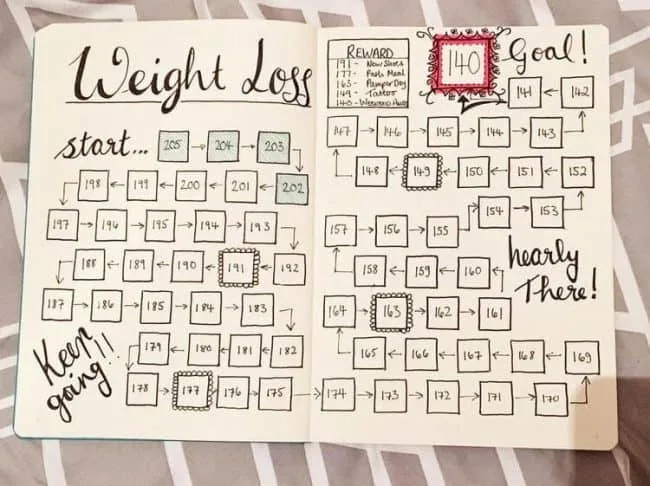 Weight Loss
start... 205 → 204 → 203
198 ← 199 ← 200 ← 201 ← 202
197 → 196 → 195 → 194 → 193
188 ← 189 ← 190 ← 191 ← 192
187 → 186 → 185 → 184 → 183
179 ← 180 ← 181 ← 182
178 → 177 → 176 → 175 →
Keep
going!!!
REWARD
191 - New Shoes
177 - Meal
163 - Pamper Day
149 - Tattoo
140 - Weekend Away
140
Goal!
141 ← 142
147 ← 146 ← 145 ← 144 ← 143
148 ← 149 ← 150 ← 151 ← 152
154 → 153
157 → 156 → 155
158 ← 159 ← 160
nearly
There!
164 → 163 → 162 → 161
165 ← 166 ← 167 ← 168 ← 169
174 → 173 → 172 → 171 → 170